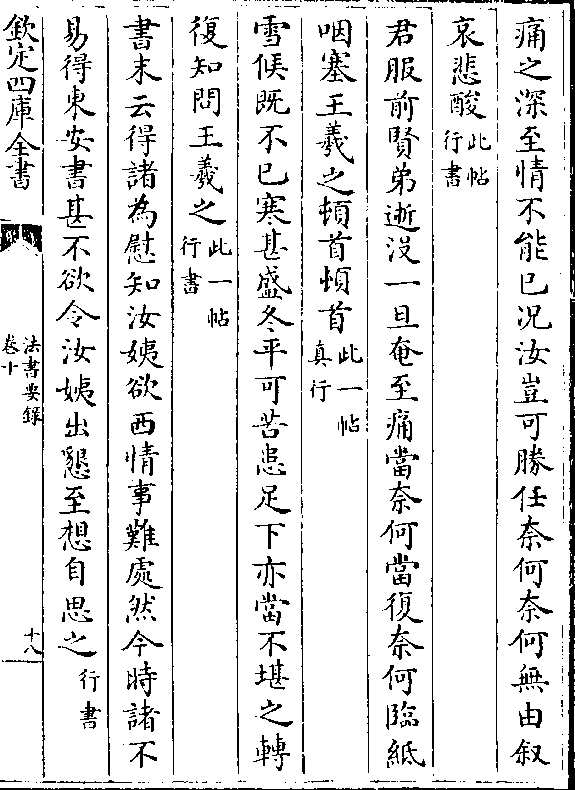 痛之深至情不能已况汝豈可勝任奈何奈何無由叙
哀悲酸此帖行書
君服前賢弟逝没一旦奄至痛當奈何當復奈何臨紙
咽塞王羲之頓首頓首此一帖真行
雪候既不已寒甚盛冬平可苦患足下亦當不堪之轉
復知問王羲之此一帖行書
書末云得諸為慰知汝姨欲西情事難處然今時諸不
易得東安書甚不欲令汝姨出懇至想自思之行書
欽定四庫全書
法書要録
卷十
十八